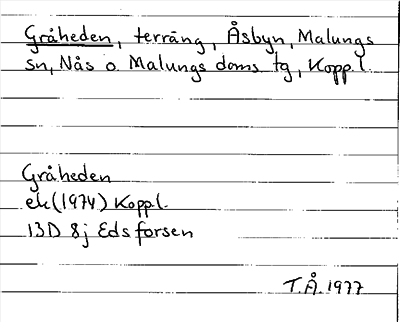 Gråheden, terräng, Åsbyn, Malungs
sn, Nås o. Malungs doms tg, Koppl.
Gråheden
ek (1974) Koppl.
13D 8j Edsforsen
T.Å. 1977